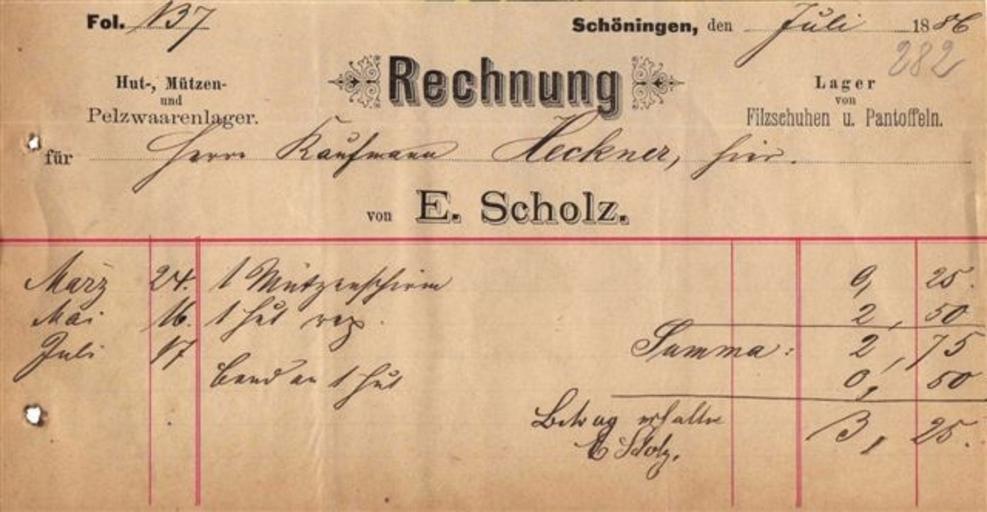 Fol. 137
Schöningen, den Juli 1886
282
Hut-, Mützen-
und
Pelzwaarenlager.
Rechnung
Lager
von
Filzschuhen u. Pantoffeln.
für Herrn Kaufmann Heckner, hier.
von E. Scholz.
März 24. 1 Mützenschirm 0, 25.
Mai 16. 1 Hut rep. 2, 50
Juli 17 Summa: 2, 75
Band an 1 Hut 0, 50
Betrag erhalten 3, 25.
E Scholz.